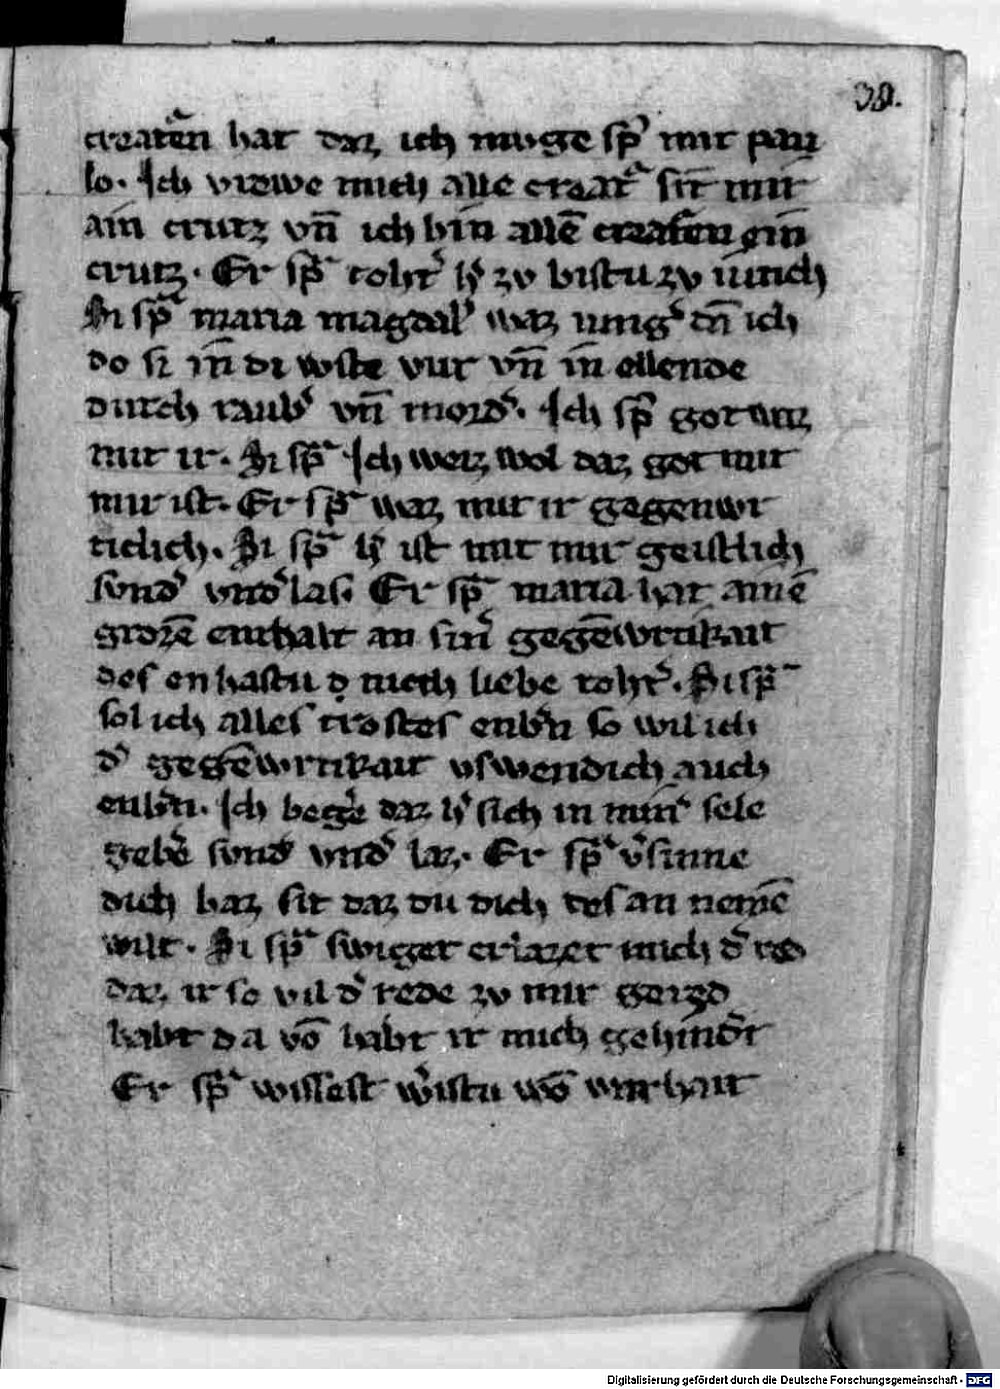 39.
creatᵛn hat daz ich muge spͬ mit pau
lo. Ich vrewe mich alle creatᵛ sīt mir
ain crutz vn̄ ich bin allē creatᵛen ein
crutz. Er spͣ tohtͬ zv bistu zv
Si spͣ maria magdalͬ waz ich
do si in di wste vur vn̄ in ellende
durch raubͬ vn̄ mordͬ. Ich spͣ got waz
mit ir. Si spͣ Ich weiz wol daz got mit
mir ist. Er spͣ waz mit ir gegenwr
ticlich. Si spͣ ist mit mir geistlich
svndͬ vndͬlas. Er spͣ maria hat ainē
grozē enthalt an sinͬ gegēwrtikait
des en hastu nieth liebe tohtͬ. Si spͣ
sol ich alles trostes enbͬn so wil ich
dͬ gegēwrtikait vswendich auch
enbͬn. Ich begͬe daz sich in minͬ sele
gebē svndͬ vndͬ laz. Er spͣ vͬsinne
dich baz sit daz du dich des an nemē
wilt. Si spͣ swiget erlazet mich dͬ red
daz ir so vil dͬ rede zv mir
habt da vō habt ir mich gehindͬt
Er spͣ wissest wͬistu warhait
Digitalisierung gefördert durch die Deutsche Forschungsgemeinschaft - DFG